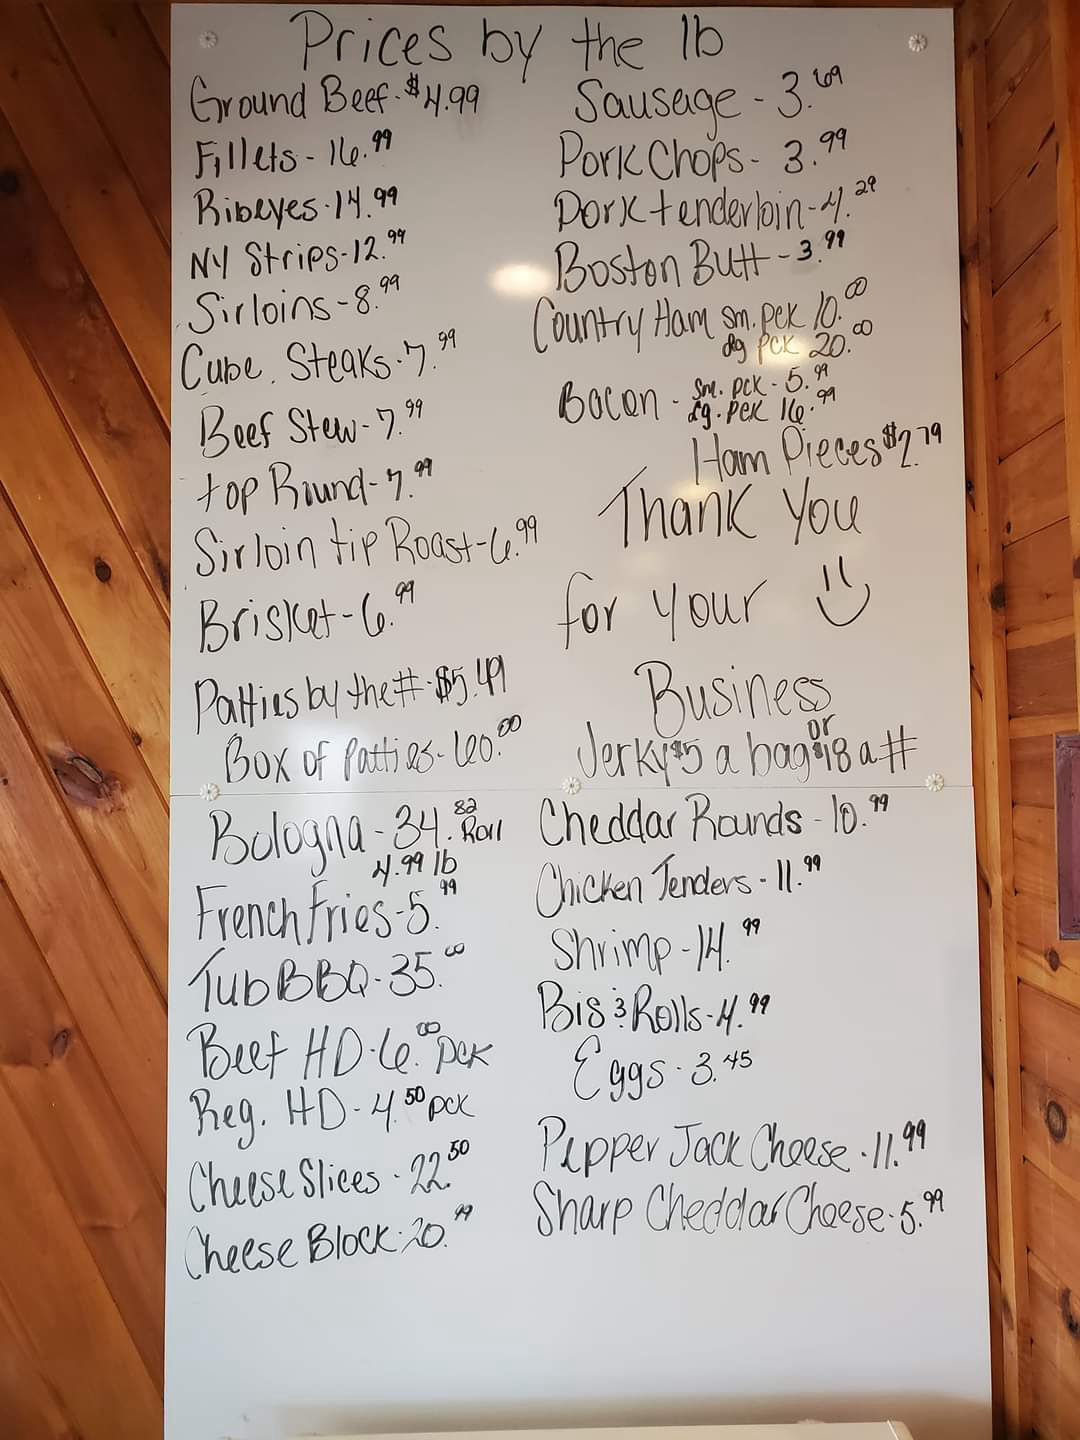 Prices by the lb
Ground Beef - $4.99
Fillets - 16.99
Ribeyes - 14.99
NY Strips - 12.99
Sirloins - 8.99
Cube Steaks - 7.99
Beef Stew - 7.99
top Round - 7.99
Sirloin tip Roast - 6.99
Brisket - 6.99
Patties by the # - $5.49
Box of Patties - 60.00
Sausage - 3.69
Pork Chops - 3.99
Pork tenderloin - 4.29
Boston Butt - 3.99
Country Ham sm. pck 10.00
lg pck 20.00
Bacon - sm. pck - 5.99
lg. pck 16.99
Ham Pieces $2.79
Thank You
for your
Business
Jerky $5 a bag or $18 a #
Bologna - 34.82 Roll
4.99 lb
French Fries - 5.99
Tub BBQ - 35.00
Beef HD - 6.00 pck
Reg. HD - 4.50 pck
Cheese Slices - 22.50
Cheese Block - 20.99
Cheddar Rounds - 10.99
Chicken Tenders - 11.99
Shrimp - 14.99
Bis & Rolls - 4.99
Eggs - 3.45
Pepper Jack Cheese - 11.99
Sharp Cheddar Cheese - 5.99